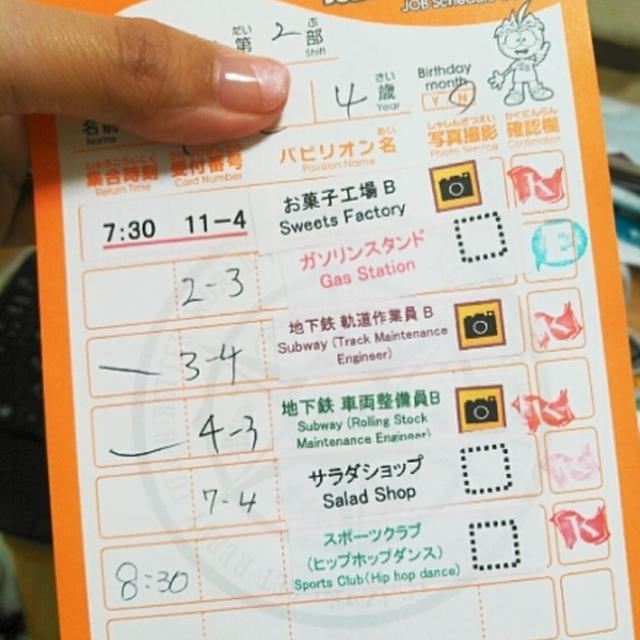 JOB Schedule
だい ぶ
第 2 部
Shift
さい
4 歳
Year
Birthday
month
Y N
名前
Name
しゅうごうじこく うけつけばんごう パビリオン名 しゃしんさつえい かくにんらん
集合時刻 受付番号 めい 写真撮影 確認欄
Return Time Card Number Pavilion Name Photo Service Confirmation
7:30 11-4 お菓子工場 B
Sweets Factory
2-3 ガソリンスタンド
Gas Station
3-4 地下鉄 軌道作業員 B
Subway (Track Maintenance
Engineer)
4-3 地下鉄 車両整備員B
Subway (Rolling Stock
Maintenance Engineer)
7-4 サラダショップ
Salad Shop
8:30 スポーツクラブ
(ヒップホップダンス)
Sports Club(Hip hop dance)